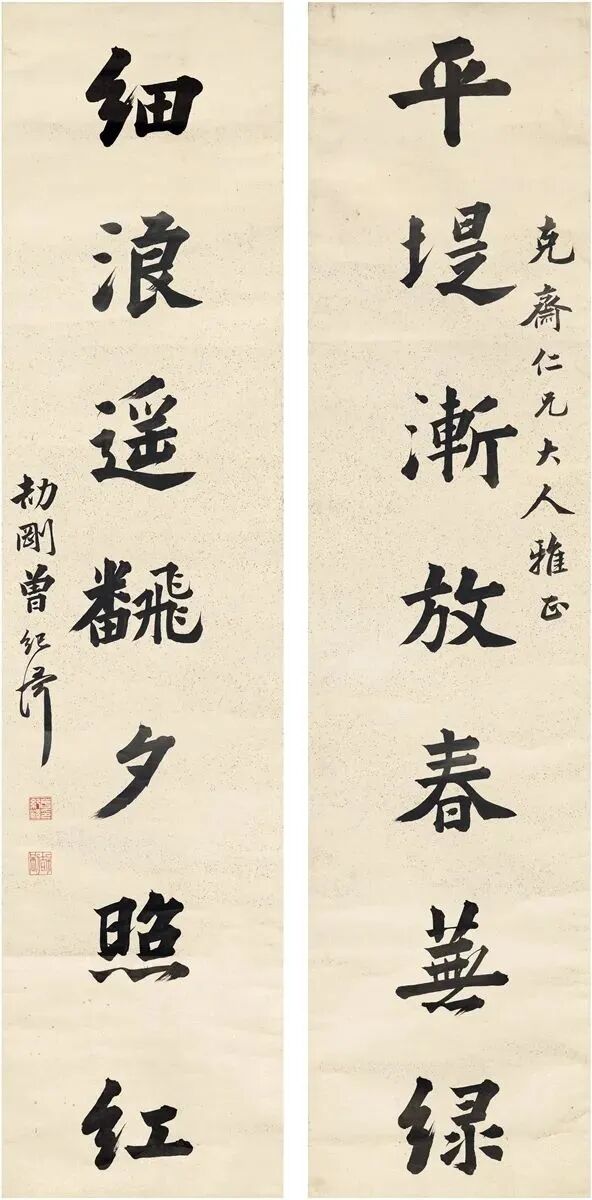 克斋仁兄大人雅正
平堤漸放春蕪绿
细浪遥飜夕照红
劼剛曾纪澤